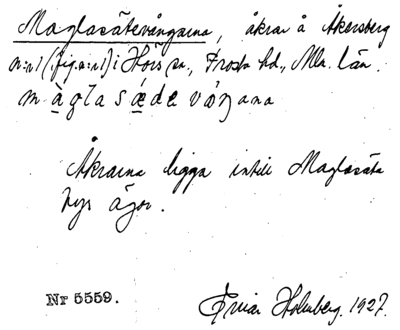 Maglasätevångarna, åkrar å Åkersberg
n:r 1 (fig. a: n:1) i Hörs sn., Frosta hd., Mlm. län.
màglasǽdevåŋana
Åkrarna ligga intill Maglasäte
bys ägor.
Nr 5559. Einar Holmberg. 1927.